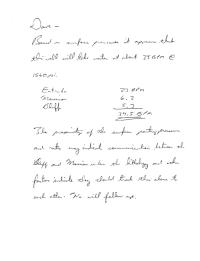 Dave -
Based on surface pressures it appears that
this well will take water at about 35 BPM @
1560 psi.
Entrada 23 BPM
Morrison 6.2
Bluff 5.3
34.5 BPM
The proximity of the surface parting pressures
and rate may indicate communication between the
Bluff and Morrison unless the lithology and other
factors indicate they should track this close to
each other. We will follow up.